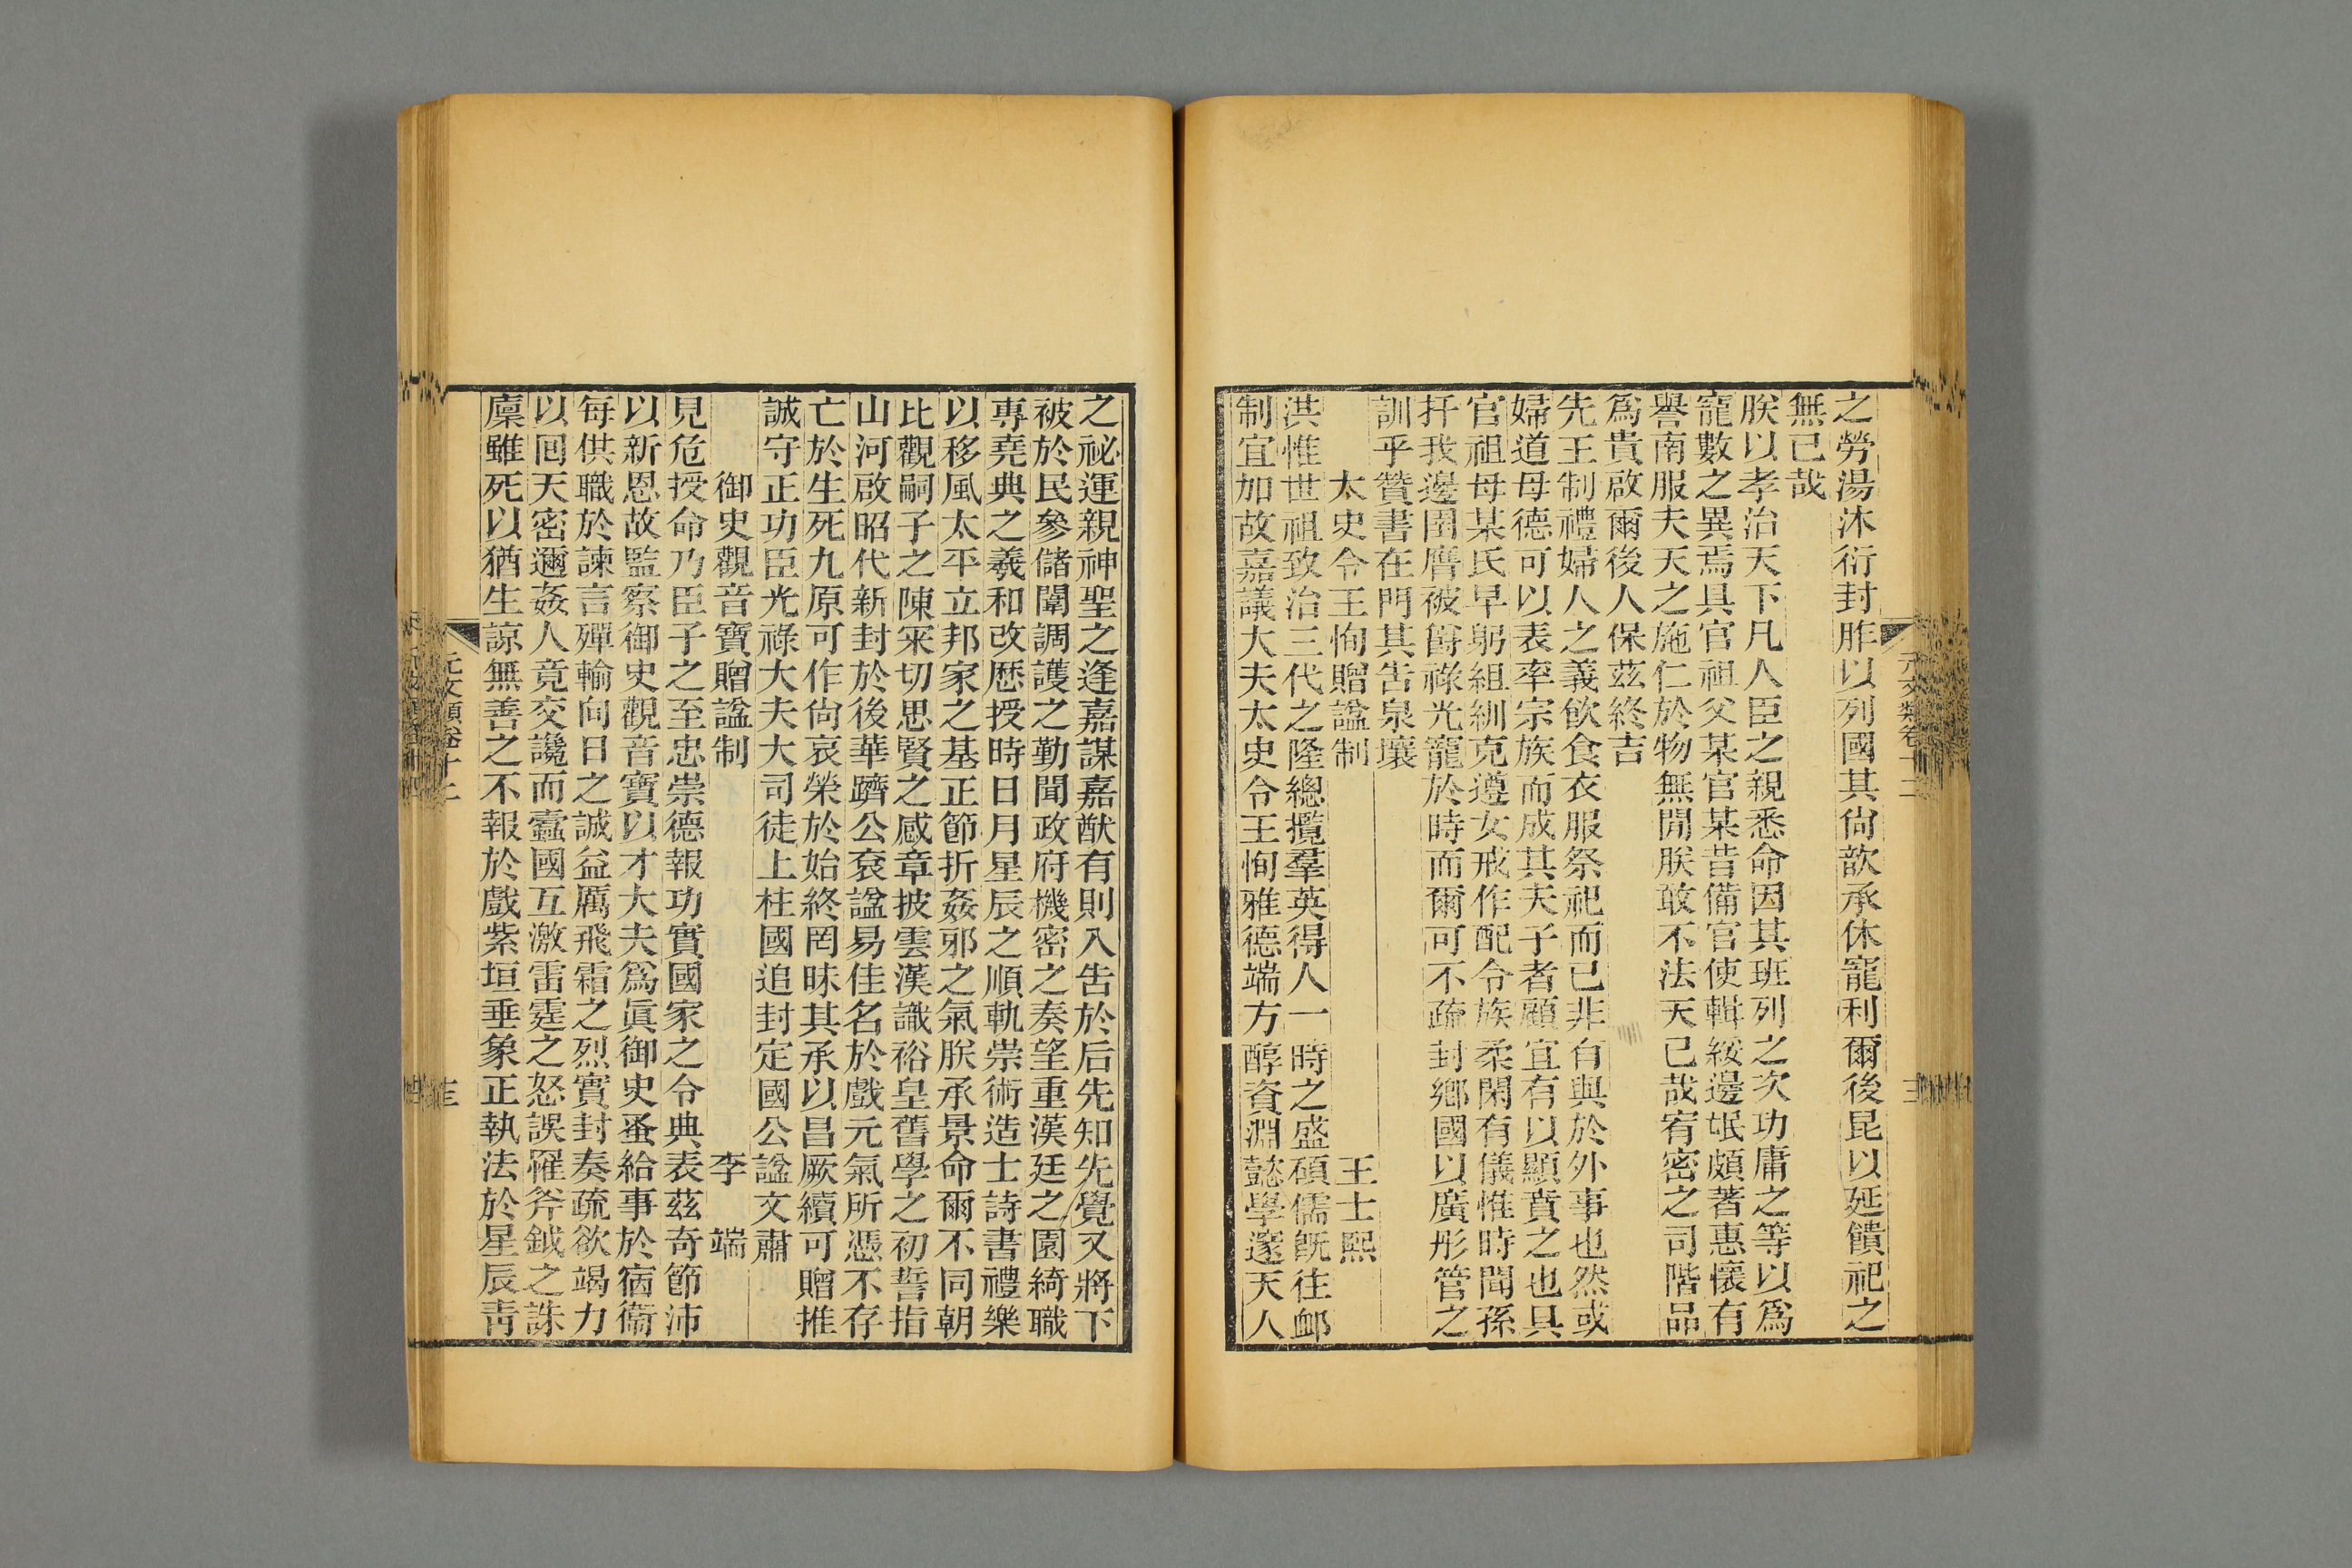 之勞湯沐衍封胙以列國其尙歆承休寵利爾後昆以延饋祀之
無已哉
朕以孝治天下凡人臣之親悉命因其班列之次功庸之等以爲
寵數之異焉具官祖父某官某昔備官使輯綏邊氓頗著惠懷有
譽南服夫天之施仁於物無閒朕敢不法天已哉宥密之司階品
爲貴啟爾後人保茲終吉
先王制禮婦人之義飲食衣服祭祀而已非有與於外事也然或
婦道母德可以表率宗族而成其夫子者顧宜有以顯賁之也具
官祖母某氏早躬組紃克遵女戒作配令族柔閑有儀惟時聞孫
扞我邊圉膺被爵祿光寵於時而爾可不疏封鄉國以廣彤管之
訓乎贊書在門其告泉壤
太史令王恂贈諡制 王士熙
洪惟世祖致治三代之隆總攬羣英得人一時之盛碩儒旣往卹
制宜加故嘉議大夫太史令王恂雅德端方醇資淵懿學邃天人
之祕運親神聖之逢嘉謀嘉猷有則入吿於后先知先覺又將下
被於民參儲闈調護之勤聞政府機密之奏望重漢廷之園綺職
專堯典之羲和改歷授時日月星辰之順軌崇術造士詩書禮樂
以移風太平立邦家之基正節折姦邪之氣朕承景命爾不同朝
比觀嗣子之陳宷切思賢之感章披雲漢識裕皇舊學之初誓指
山河啟昭代新封於後華躋公袞諡易佳名於戲元氣所憑不存
亡於生死九原可作尙哀榮於始終罔昧其承以昌厥續可贈推
誠守正功臣光祿大夫大司徒上柱國追封定國公諡文肅
御史觀音寶贈諡制 李端
見危授命乃臣子之至忠崇德報功實國家之令典表茲奇節沛
以新恩故監察御史觀音寶以才大夫爲眞御史蚤給事於宿衞
每供職於諫言殫輸向日之誠益厲飛霜之烈實封奏疏欲竭力
以囘天密邇姦人竟交讒而蠹國互激雷霆之怒誤罹斧鉞之誅
廩雖死以猶生諒無善之不報於戲紫垣垂象正執法於星辰靑
元文類卷十二